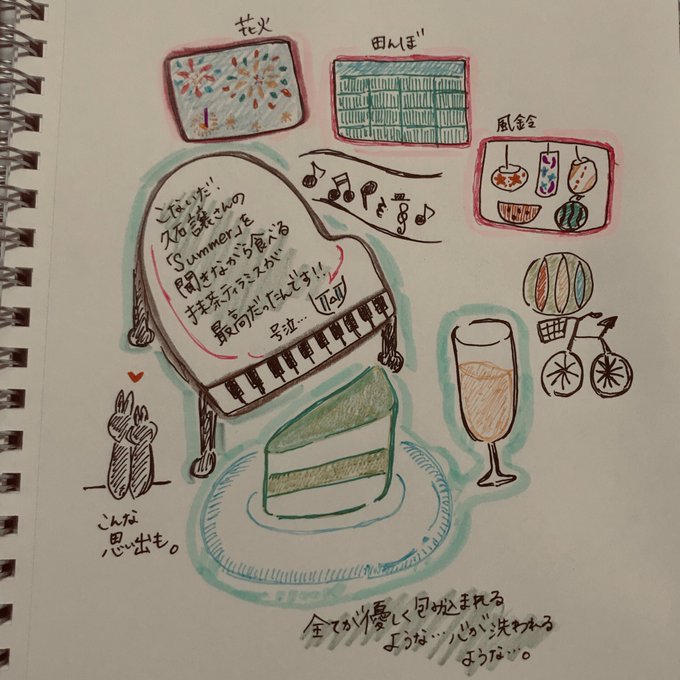 花火
田んぼ
風鈴
こないだ!
久石譲さんの
「Summer」を
聞きながら食べる
抹茶ティラミスが
最高だったんです!!
号泣…
こんな
思い出も。
全てが優しく包み込まれる
ような…心が洗われる
ような…。